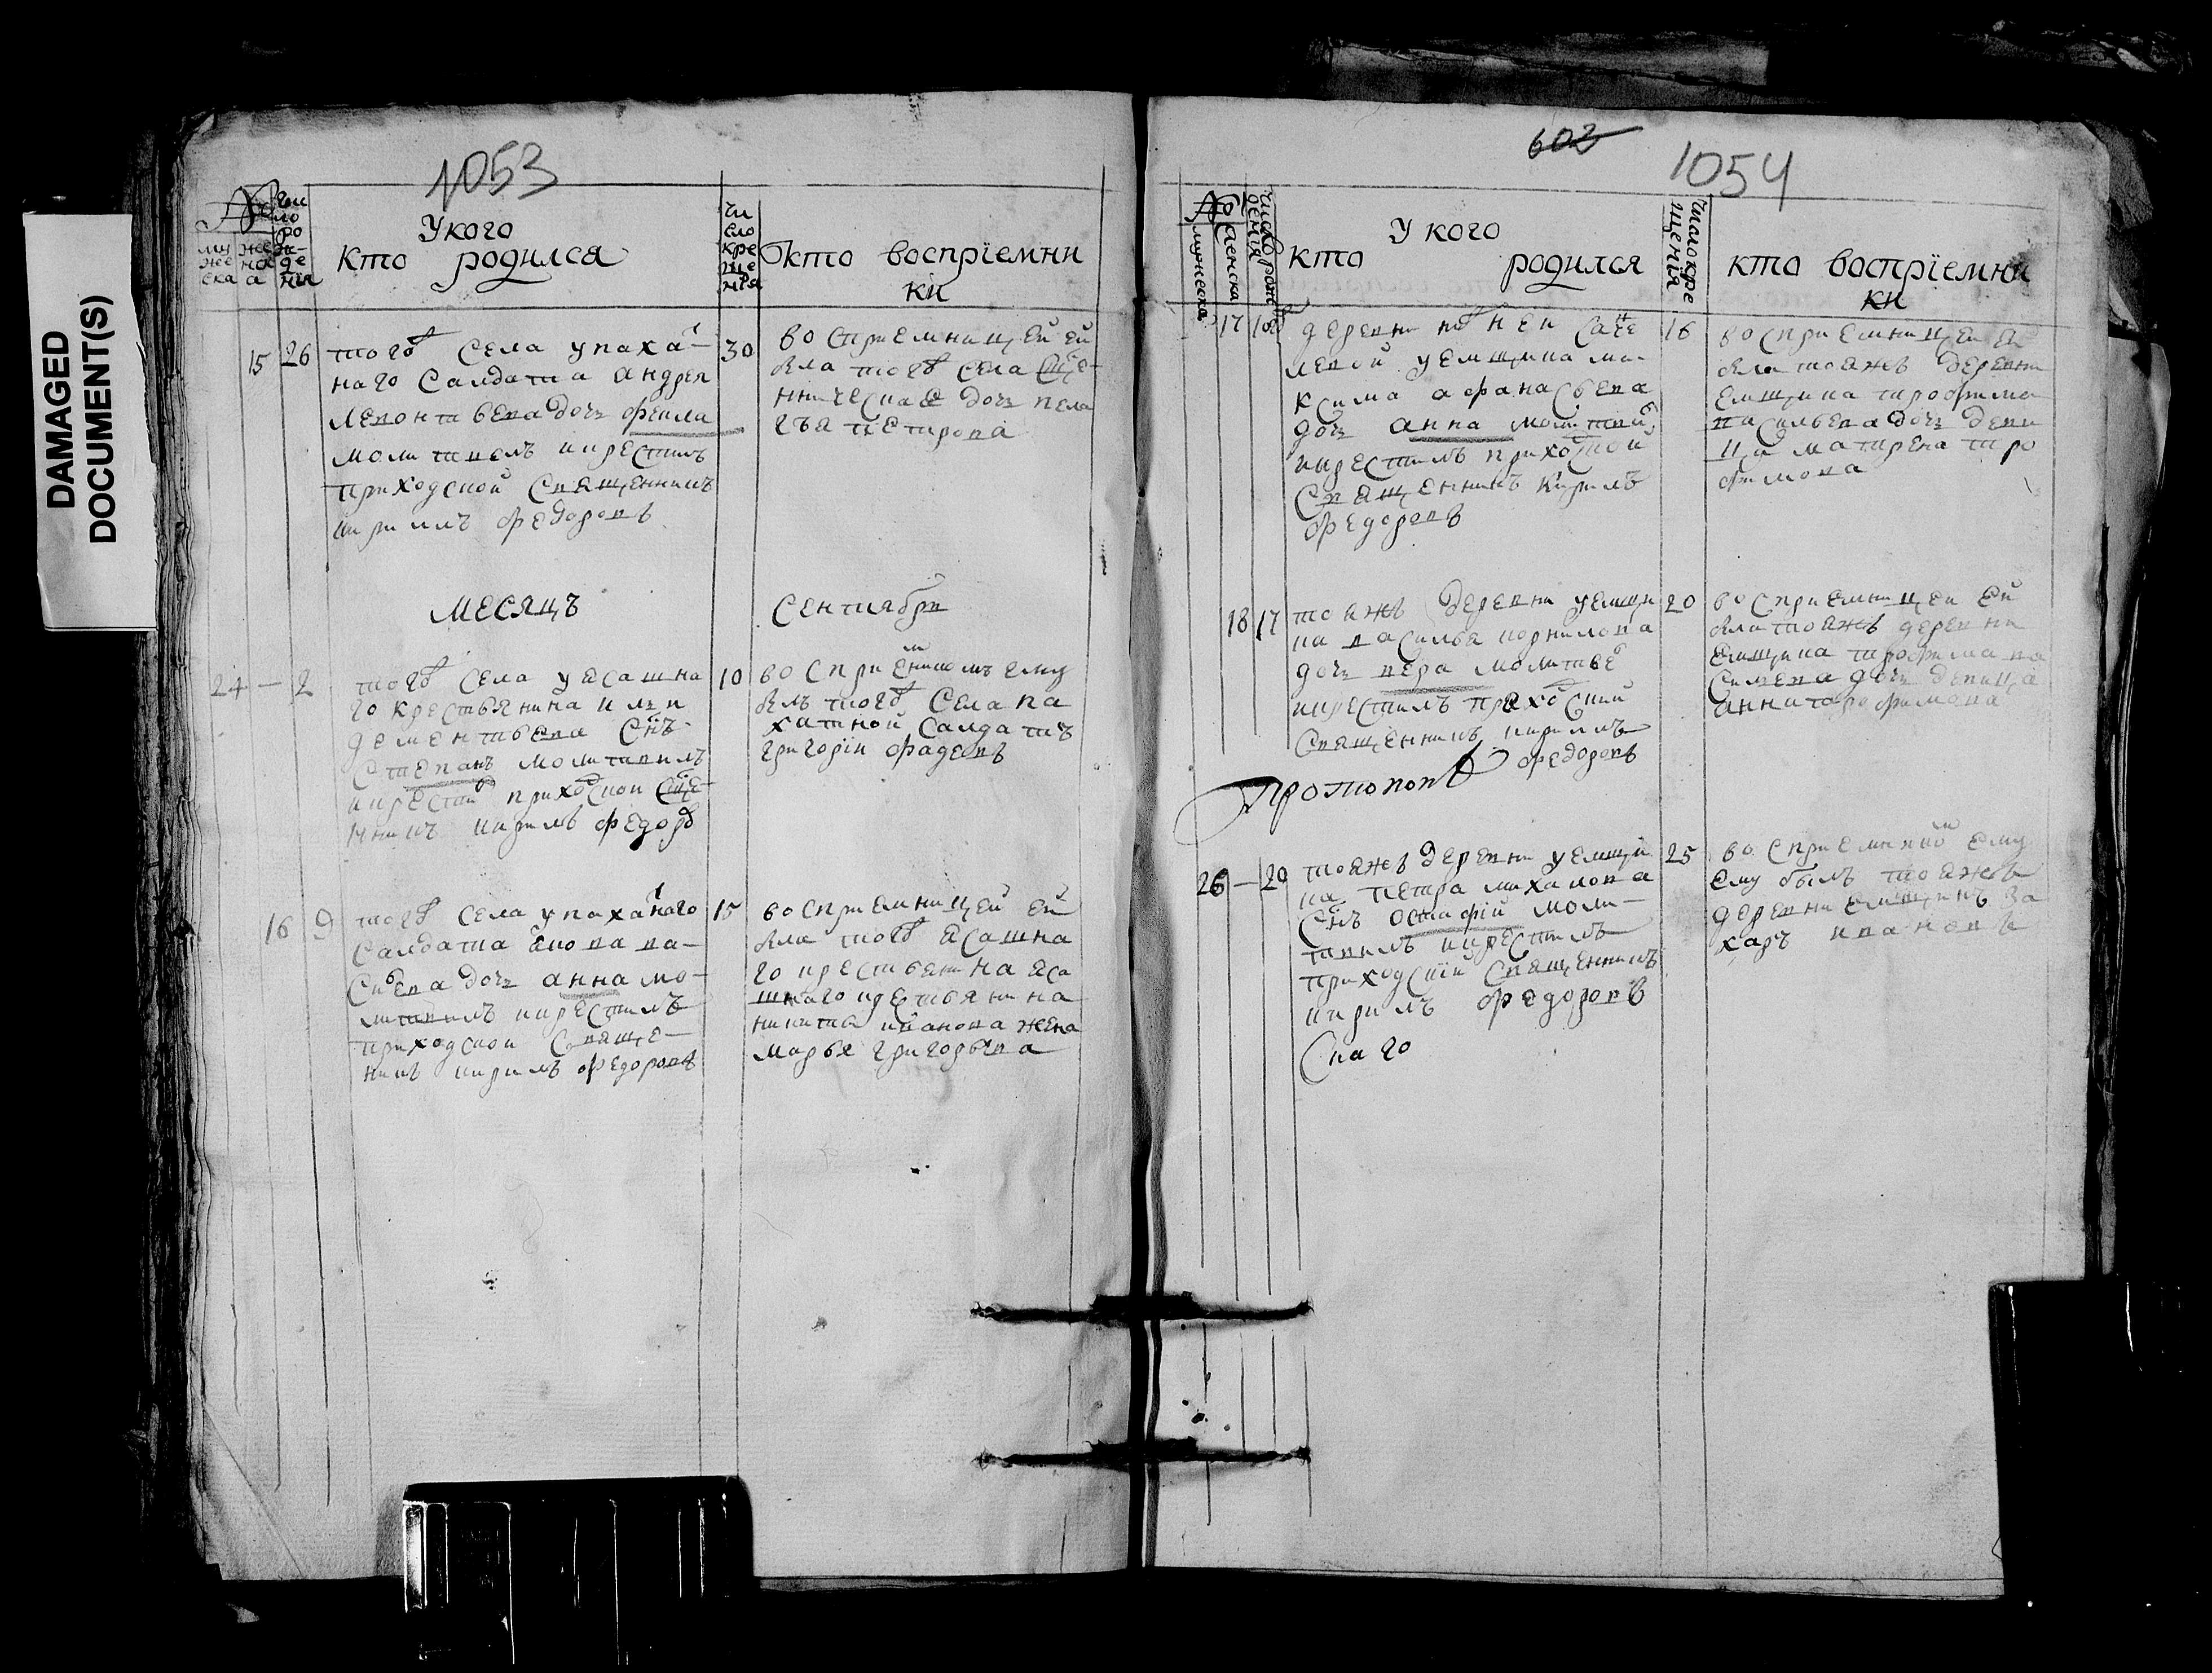 DAMAGED
DOCUMENT(S)
1053
№
му
же
ска
же
на
а
чи
ло
ро
ж-
де
нїя
У кого
кто родился
чи
сло
кре
ще
нїя
кто воспрїемни
ки
15 26
того села у паха-
наго салдата андрея
леонтьева дочь фекла
молитвилъ икрестилъ
приходской священникъ
кирилъ федоровъ
30
восприемницей ей
была того села свще-
нническая дочь пела
гѣя петрова
месяцъ сентября
24 — 2
того села у ясашна
го крестьянина
дементьева снъ
степанъ молитвилъ
икрестил приходской свще-
нникъ кирилъ федоров
10
восприемникомъ ему
былъ того села па
хатной салдатъ
григорїи фадеевъ
16 9
того села у пахатнаго
салдата ва-
сильева дочь анна мо-
литвилъ икрестилъ
приходской свяще-
никъ кирилъ федоровъ
15
восприемницей ей
была того ясашна
го крестьянина яса
шнаго крестьянина
никиты иванова жена
марья григорьева
602
1054
№
мужеска
женска
число рож
денїя
У кого
кто родился
число кре
щенїя
кто воспрїемни
ки
17
деревни
у емщика ма-
ксима афанасьева
дочь анна молитвил
икрестилъ приходской
священникъ кирилъ
федоровъ
16
восприемницей ей
была тояжъ деревни
емщика трофима
васильева дочь деви
ца матрена тро
фимова
18 17
тояжъ деревни у емщи
ка василья корнилова
дочь вера молитве
икрестилъ прихоский
священникъ кирилъ
федоровъ
20
восприемницей ей
была тояжъ деревни
емщика трофима ва
силева дочь девица
анна трофимова
протопопъ
26 — 20
тояжъ деревни у емщи
ка петра михалова
снъ остафїй моли-
твилъ икрестилъ
приходскїй священникъ
кирилъ федоровъ
скаго
25
восприемникой ему
ему былъ тояжъ
деревни емщикъ за
харъ ивановъ